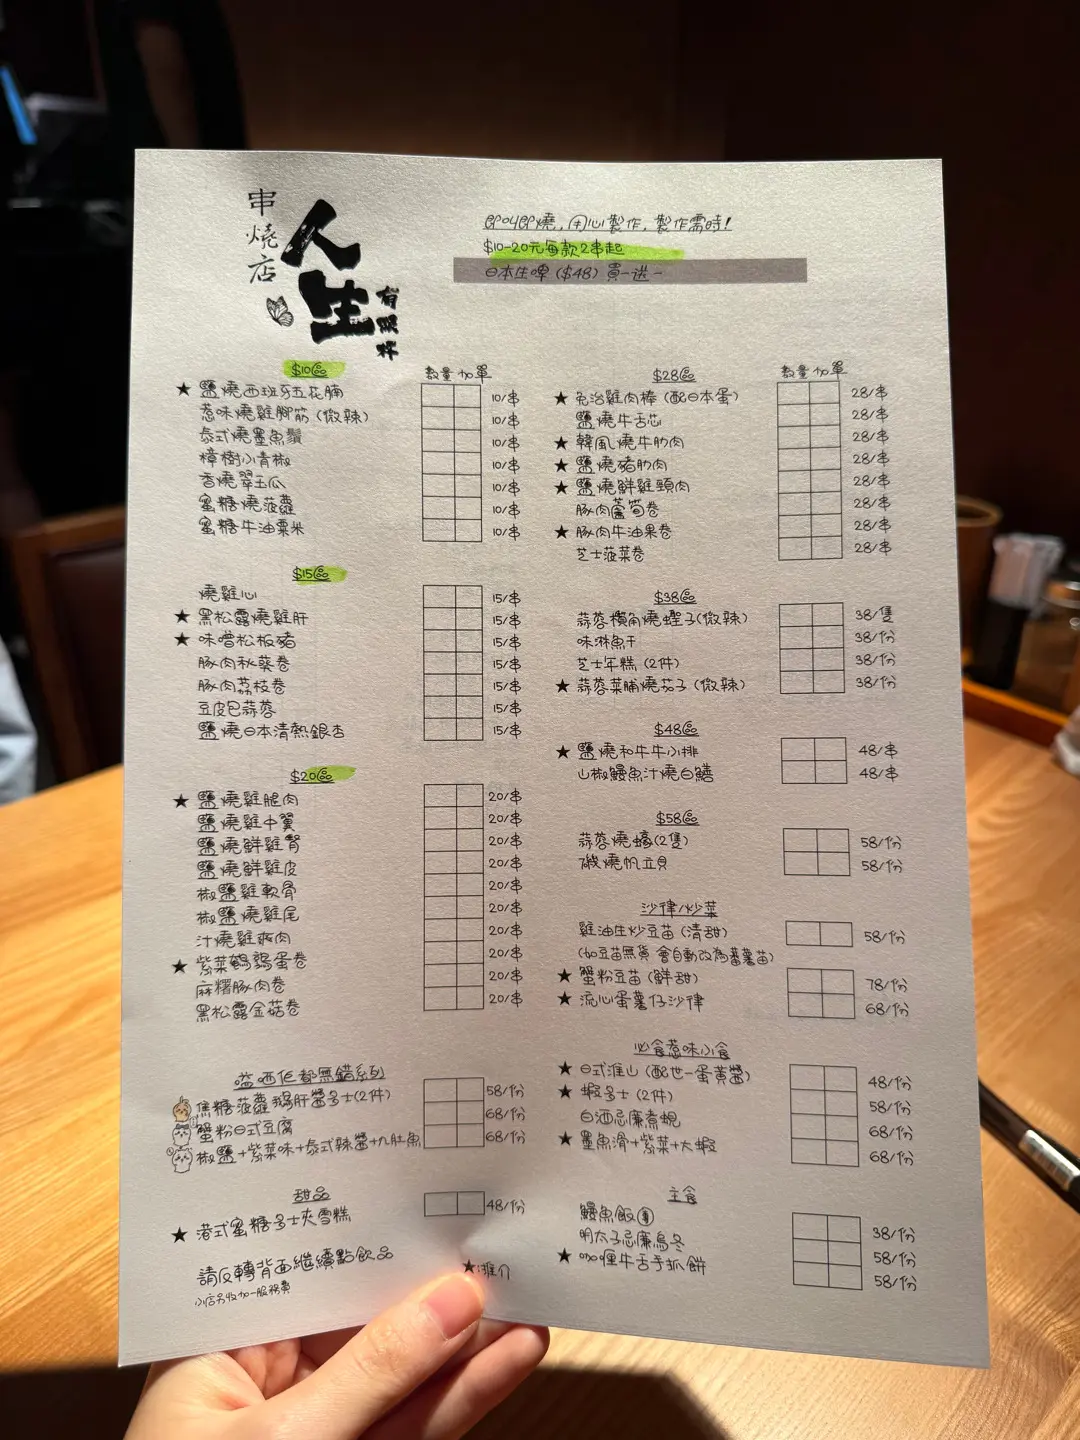 串燒店
人生
有限杯
即叫即燒，用心製作，製作需時！
$10-20元每款2串起
日本生啤（$48）買一送一
$10區
數量 加單
★ 鹽燒西班牙五花腩 10/串
惹味燒雞腳筋（微辣） 10/串
泰式燒墨魚鬚 10/串
樟樹小青椒 10/串
香燒翠玉瓜 10/串
蜜糖燒菠蘿 10/串
蜜糖牛油粟米 10/串
$15區
燒雞心 15/串
★ 黑松露燒雞肝 15/串
★ 味噌松板豬 15/串
豚肉秋葵卷 15/串
豚肉荔枝卷 15/串
豆皮包蒜蓉 15/串
鹽燒日本清熱銀杏 15/串
$20區
★ 鹽燒雞腿肉 20/串
鹽燒雞中翼 20/串
鹽燒鮮雞腎 20/串
鹽燒鮮雞皮 20/串
椒鹽雞軟骨 20/串
椒鹽燒雞尾 20/串
汁燒雞爽肉 20/串
★ 紫菜鵪鶉蛋卷 20/串
麻糬豚肉卷 20/串
黑松露金菇卷 20/串
嗌晒佢都無錯系列
焦糖菠蘿鵝肝醬多士(2件) 58/份
蟹粉日式豆腐 68/份
椒鹽+紫菜味+泰式辣醬+九肚魚 68/份
甜品
★ 港式蜜糖多士夾雪糕 48/份
請反轉背面繼續點飲品
小店另收加一服務費
★推介
$28區
數量 加單
★ 免治雞肉棒（配日本蛋） 28/串
鹽燒牛舌芯 28/串
★ 韓風燒牛肋肉 28/串
★ 鹽燒豬肋肉 28/串
★ 鹽燒鮮雞頸肉 28/串
豚肉蘆筍卷 28/串
★ 豚肉牛油果卷 28/串
芝士菠菜卷 28/串
$38區
蒜蓉欖角燒蟶子（微辣） 38/隻
味淋魚干 38/份
芝士年糕（2件） 38/份
★ 蒜蓉菜脯燒茄子（微辣） 38/份
$48區
★ 鹽燒和牛牛小排 48/串
山椒鰻魚汁燒白鱔 48/串
$58區
蒜蓉燒蠔(2隻) 58/份
磯燒帆立貝 58/份
沙律/炒菜
雞油生炒豆苗（清甜） 58/份
（如豆苗無貨 會自動改為蕃薯苗）
★ 蟹粉豆苗（鮮甜） 78/份
★ 流心蛋薯仔沙律 68/份
必食惹味小食
★ 日式淮山（配世一蛋黃醬） 48/份
★ 蝦多士（2件） 58/份
白酒忌廉煮蜆 68/份
★ 墨魚滑+紫菜+大蝦 68/份
主食
鰻魚飯團 38/份
明太子忌廉烏冬 58/份
★ 咖喱牛舌手抓餅 58/份